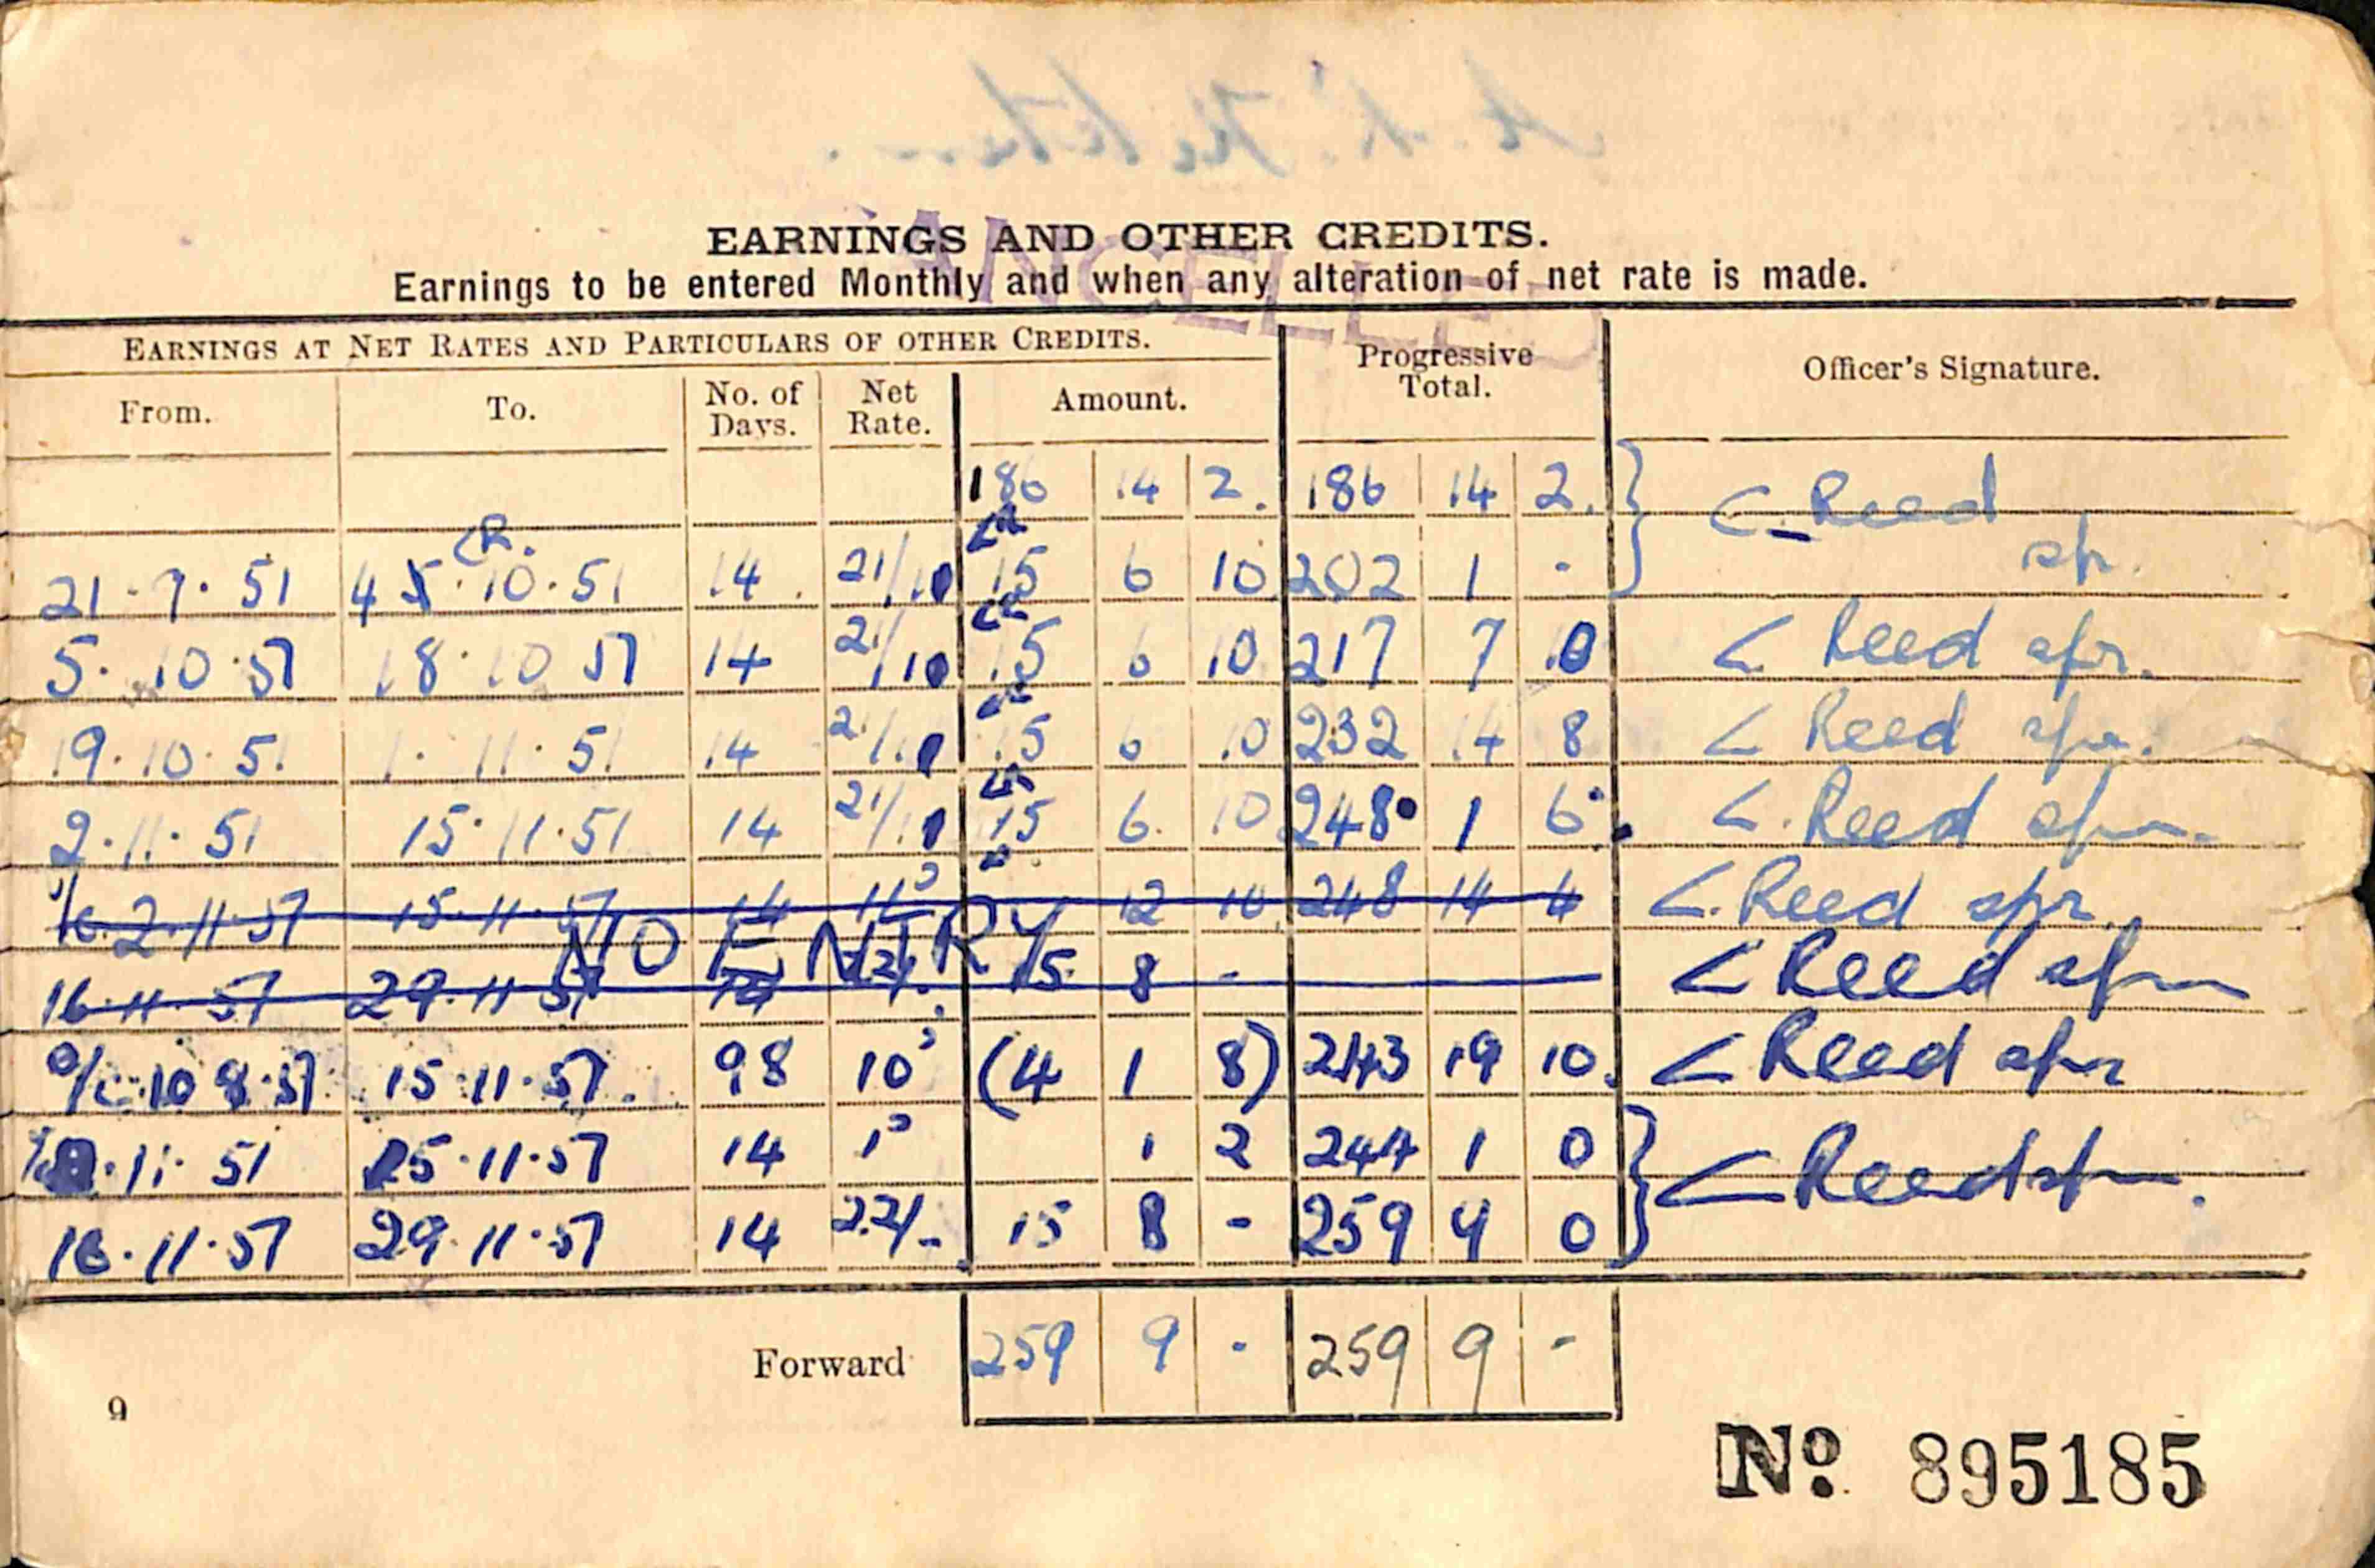 CANCELLED
EARNINGS AND OTHER CREDITS.
Earnings to be entered Monthly and when any alteration of net rate is made.
EARNINGS AT NET RATES AND PARTICULARS OF OTHER CREDITS.
Progressive Total.
Officer's Signature.
From. To. No. of Days. Net Rate. Amount.
186 14 2. 186 14 2. C. Reed
CR.
21 . 9 . 51 4 5 . 10 . 51 14 . 21/10 15 6 10 202 1 - spr.
5 . 10 . 51 18 . 10 51 14 21/10 15 6 10 217 7 10 C Reed spr.
19 . 10 . 51 1 . 11 . 51 14 21/10 15 6 10 232 14 8 C Reed spr.
2 . 11 . 51 15 . 11 . 51 14 21/10 15 6. 10 248 1 6 C. Reed spr.
2 . 11 . 51 15 . 11 . 51 14 11 12 10 248 14 4 C. Reed spr.
NO ENTRY
16 . 11 . 51 29 . 11 51 14 22/- 15 8 - C Reed spr
10 8 . 51 15 . 11 . 51 . 98 10 (4 1 8) 243 19 10. C Reed spr
11 . 51 15 . 11 . 51 14 1 1 2 244 1 0 C Reed spr.
16 . 11 . 51 29 . 11 . 51 14 22/- 15 8 - 259 9 0
Forward 259 9 - 259 9 -
9
No. 895185